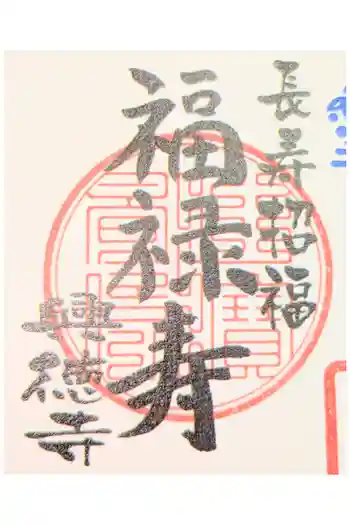 長寿招福
福禄寿
興徳寺